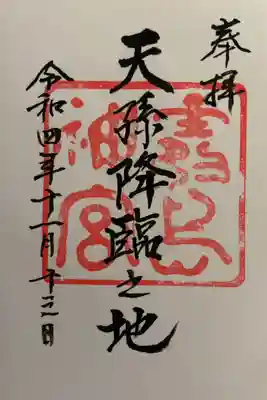 奉拝
天孫降臨之地
神宮
令和四年十一月十三日